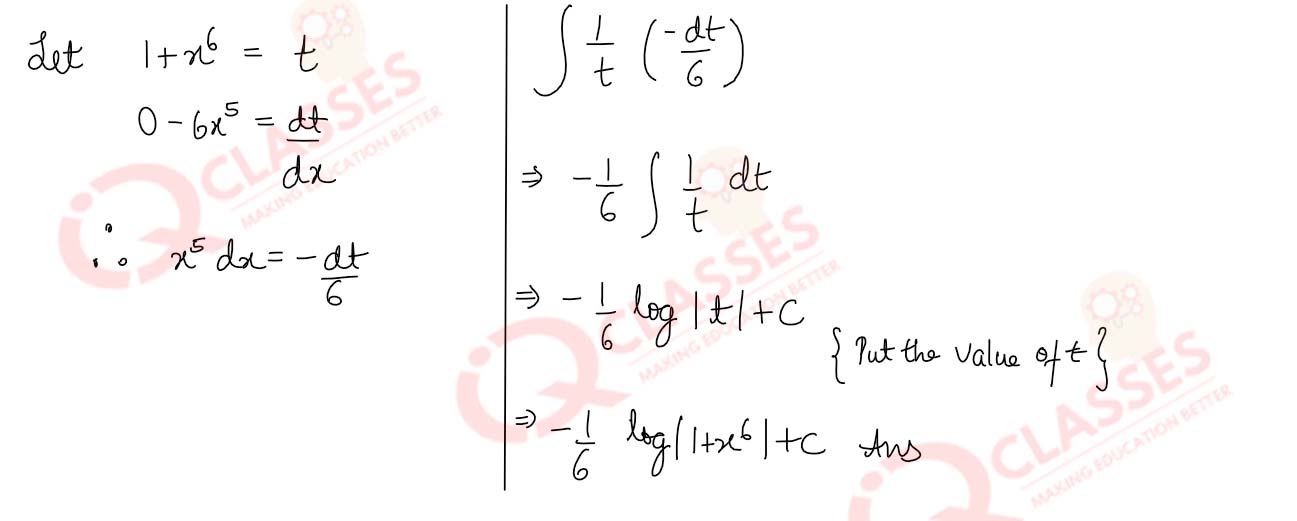 Let 1+x⁶ = t
0 - 6x⁵ = dt/dx
∴ x⁵ dx = -dt/6
∫ 1/t (-dt/6)
⇒ -1/6 ∫ 1/t dt
⇒ -1/6 log |t| + C
{ Put the value of t }
⇒ -1/6 log |1+x⁶| + C Ans
CLASSES
MAKING EDUCATION BETTER
CLASSES
MAKING EDUCATION BETTER
CLASSES
MAKING EDUCATION BETTER